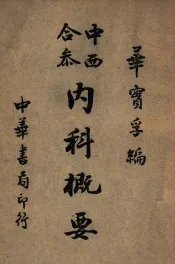 華實孚編
中西
合參
內科概要
中華書局印行